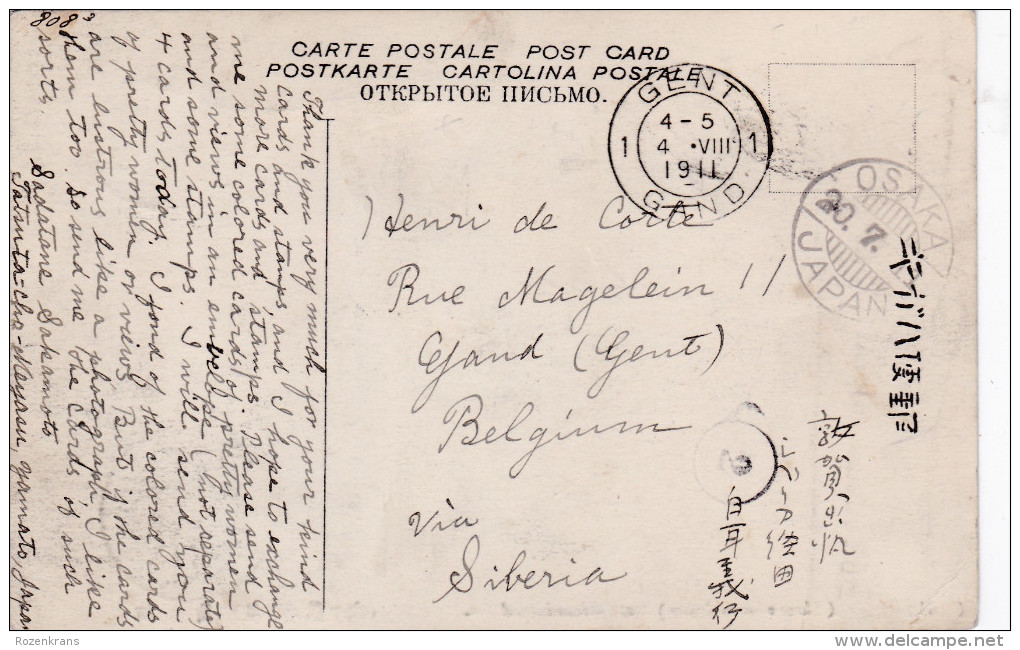 CARTE POSTALE POST CARD
POSTKARTE CARTOLINA POSTALE
ОТКРЫТОЕ ПИСЬМО.
GENT
1 4-5 1
4 VIII
1911
GAND
OSAKA
20.7.
JAPAN
Henri de Corte
Rue Magelein 11
Gand (Gent)
Belgium
Via
Siberia
敦賀出帆
経由
白耳義行
Thank you very much for your kind
cards and stamps, and I hope to exchange
more cards and stamps. Please send
me some colored cards of pretty women
and views in an envelope (not separate)
and some stamps. I will send you
4 cards today. I fond of the colored cards
of pretty women or views. But if the cards
are lustrous like a photograph, I like
them too. So send me the cards of such
sorts
Sadatane Sakamoto
Tatsuta-cho, Yamato, Japan
Rozenkrans
delcampe.net